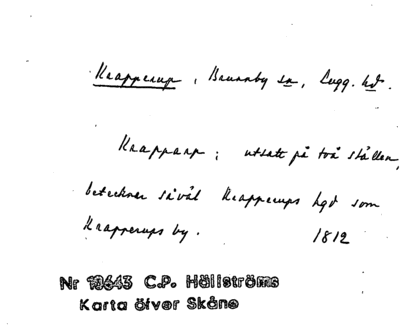 Krapperup, Brunnby sn, Lugg. hd.
Krapparp; utsatt på två ställen,
betecknar såväl Krapperups hgd som
Krapperups by. 1812
Nr 10643 C.P. Hällströms
Karta öfver Skåne